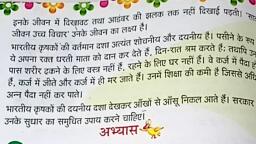 इनके जीवन में दिखावट तथा आडंबर की झलक तक नहीं दिखाई पड़ती। "सादा
जीवन उच्च विचार' उनके जीवन का लक्ष्य है।
भारतीय कृषकों की वर्तमान दशा अत्यंत शोचनीय और दयनीय है। पसीने के रूप
ये अपना रक्त धरती माता को दान कर देते हैं, दिन-रात श्रम करते हैं; तथापि उन
पास शरीर ढकने के लिए वस्त्र नहीं हैं, रहने के लिए घर नहीं हैं। वे कर्ज में पैदा हो
हैं, कर्ज में जीते और कर्ज में ही मर जाते हैं। उनमें शिक्षा की कमी है जिससे अधि
अन्न पैदा नहीं कर पाते।
भारतीय कृषकों की दयनीय दशा देखकर आँखों से आँसू निकल आते हैं। सरकार
उनके सुधार का समुचित उपाय करने चाहिएँ।
अभ्यास